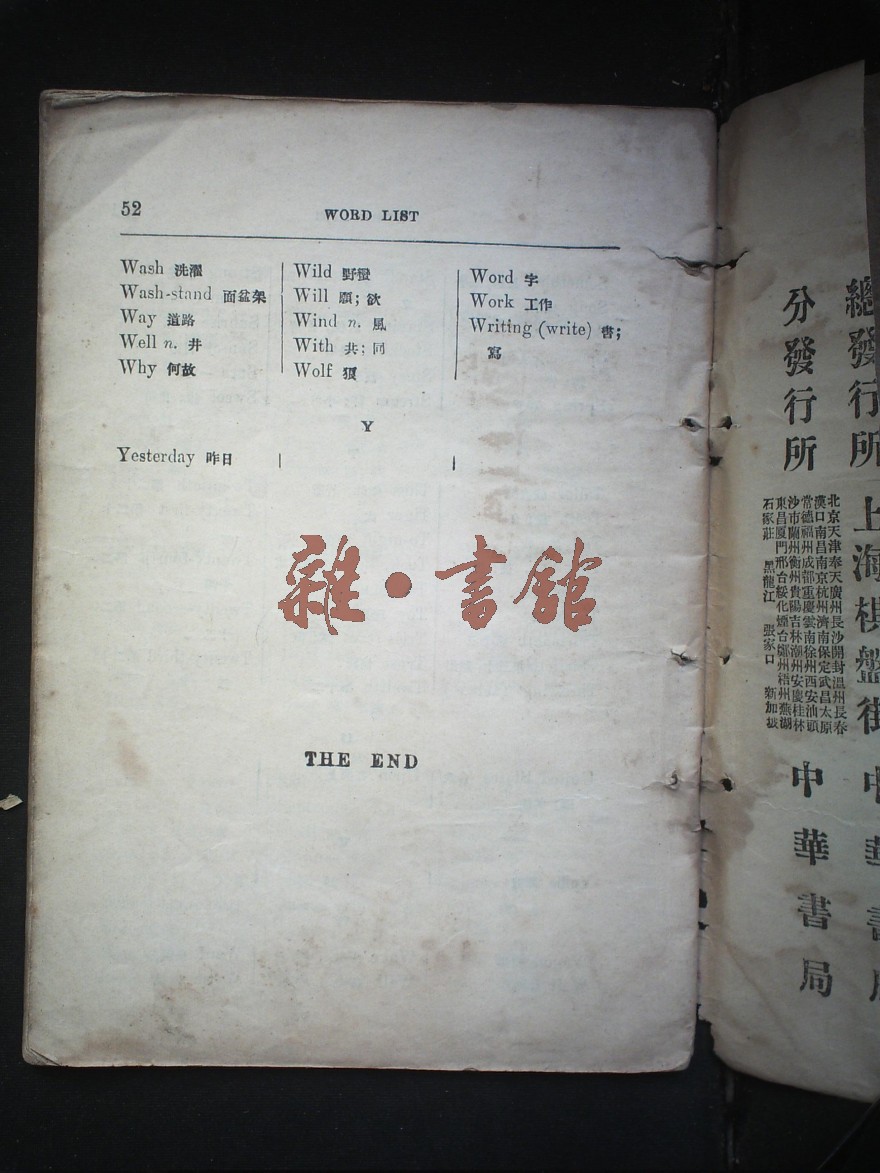 52
WORD LIST
Wash 洗濯
Wash-stand 面盆架
Way 道路
Well n. 井
Why 何故
Wild 野蠻
Will 願; 欲
Wind n. 風
With 共; 同
Wolf 狼
Word 字
Work 工作
Writing (write) 書;
寫
Y
Yesterday 昨日
雜·書館
THE END
總發行所 上海棋盤街 中華書局
分發行所
北京天津奉天廣州長沙開封溫州長春
漢口南昌南京杭州濟南保定武昌太原
常德福州成都重慶雲南徐州西安汕頭
沙市蘭州衡州貴陽吉林潮州安慶桂林
東昌厦門邢台綏化煙台鄭州梧州蕪湖
石家莊 黑龍江 張家口 新加坡
中華書局